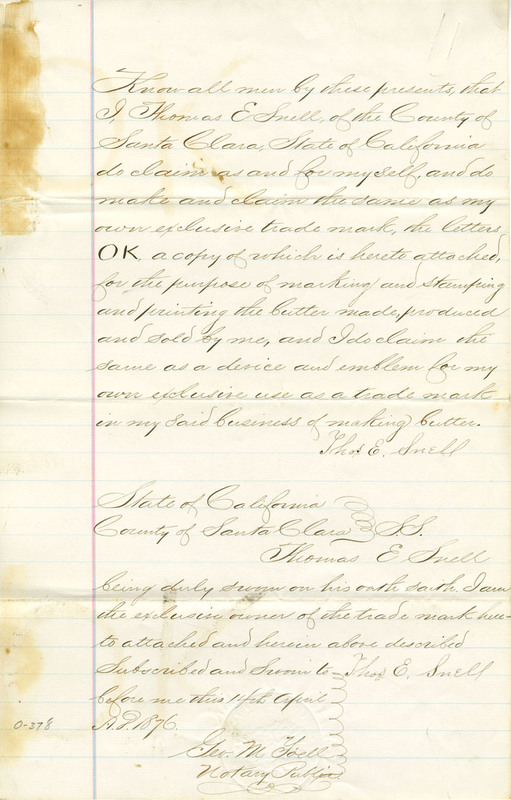 Know all men by these presents, that
I, Thomas E Snell, of the County of
Santa Clara, State of California
do claim as and for myself, and do
make and claim the same as my
own exclusive trade mark, the letters
OK a copy of which is hereto attached,
for the purpose of marking and stamping
and printing the butter made, produced
and sold by me, and I do claim the
same as a device and emblem for my
own exclusive use as a trade mark
in my said business of making butter.
Thos E. Snell
State of California
County of Santa Clara S.S.
Thomas E Snell
being duly sworn on his oath saith. I am
the exclusive owner of the trade mark here-
to attached and herein above described
Subscribed and Sworn to Thos E. Snell
before me this 14th April
A.D. 1876.
0-378
Geo. M.
Notary Public